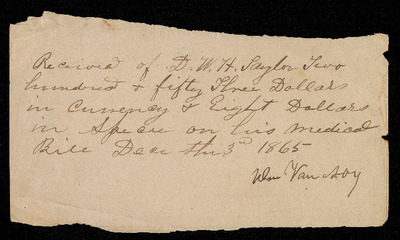 Received of D. W. H. Saylor Two
hundred & fifty Three Dollars
in Currency & Eight Dollars
in Specie on his Medical
Bill Dec the 3rd 1865
Wm Van